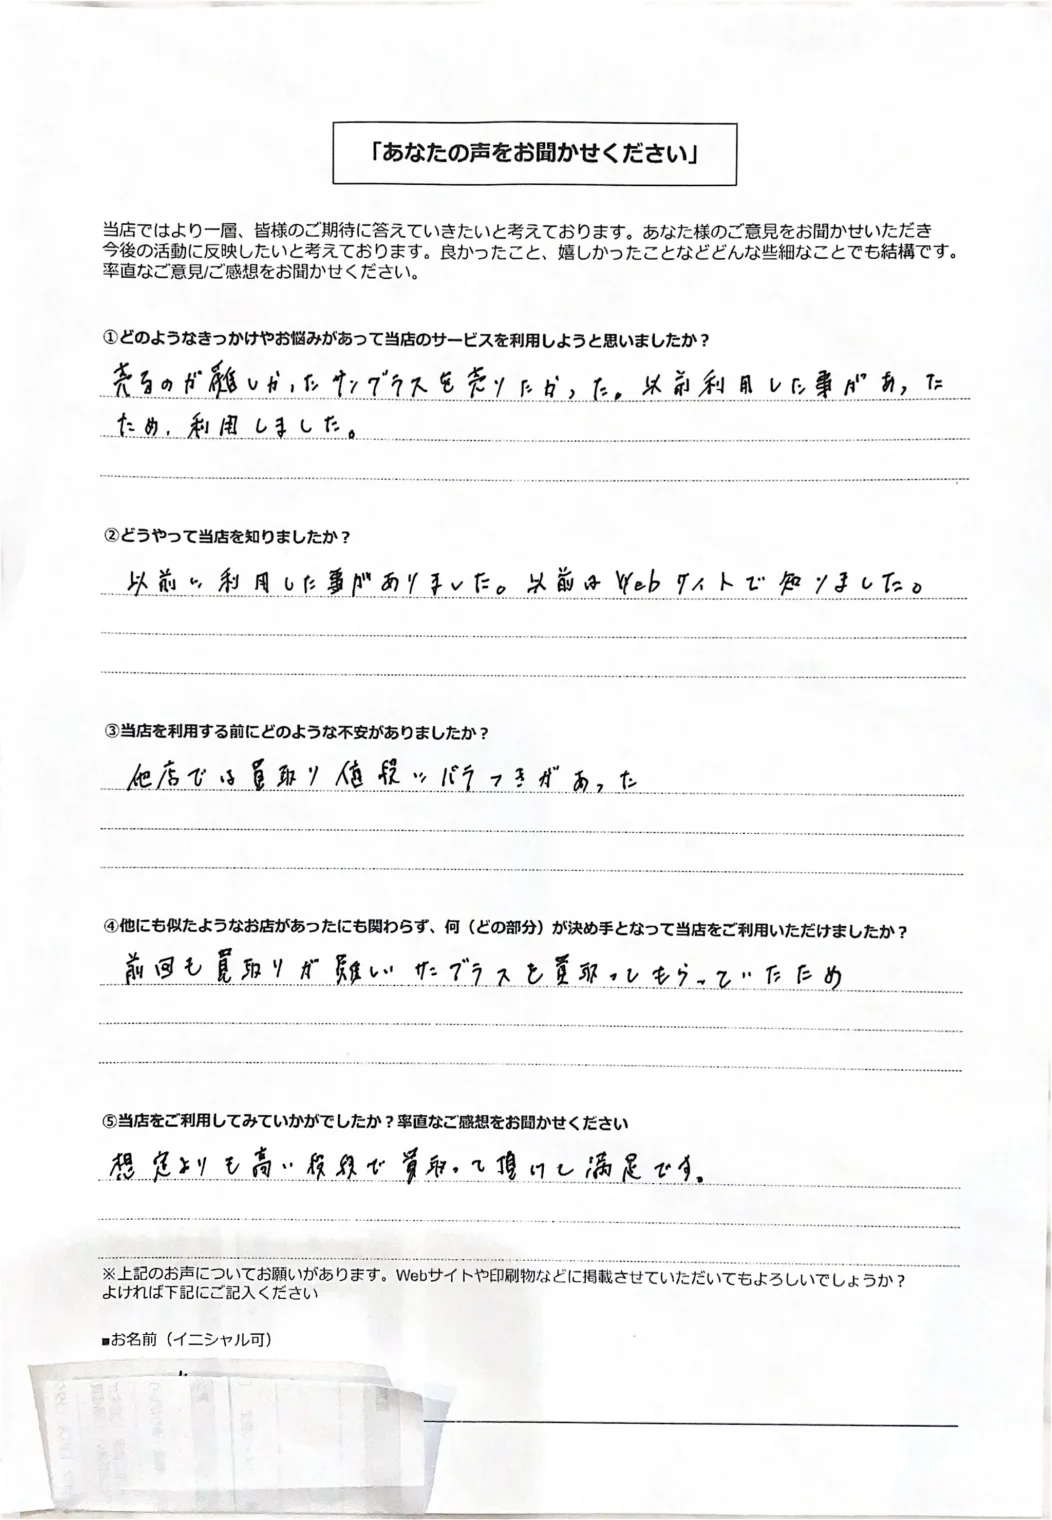 「あなたの声をお聞かせください」
当店ではより一層、皆様のご期待に答えていきたいと考えております。あなた様のご意見をお聞かせいただき
今後の活動に反映したいと考えております。良かったこと、嬉しかったことなどどんな些細なことでも結構です。
率直なご意見/ご感想をお聞かせください。
①どのようなきっかけやお悩みがあって当店のサービスを利用しようと思いましたか？
売るのが難しかったサングラスを売りたかった。以前利用した事があった
ため、利用しました。
②どうやって当店を知りましたか？
以前に利用した事がありました。以前はWebサイトで知りました。
③当店を利用する前にどのような不安がありましたか？
他店では買取り値段にバラつきがあった
④他にも似たようなお店があったにも関わらず、何（どの部分）が決め手となって当店をご利用いただけましたか？
前回も買取りが難しいサングラスを買取ってもらっていたため
⑤当店をご利用してみていかがでしたか？率直なご感想をお聞かせください
想定よりも高い値段で買取って頂けて満足です。
※上記のお声についてお願いがあります。Webサイトや印刷物などに掲載させていただいてもよろしいでしょうか？
よければ下記にご記入ください
■お名前（イニシャル可）